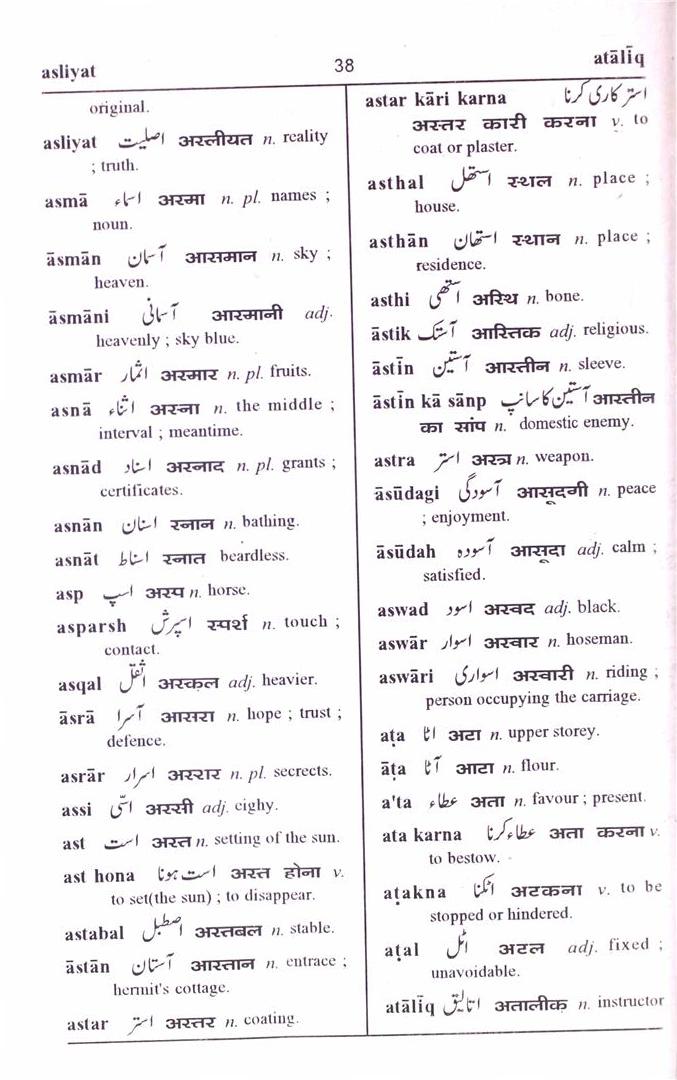 asliyat
38
atālīq
original.
asliyat اصلیت अस्लीयत n. reality
; truth.
asmā اسماء अस्मा n. pl. names ;
noun.
āsmān آسمان आसमान n. sky ;
heaven.
āsmāni آسمانی आस्मानी adj.
heavenly ; sky blue.
asmār اثمار अस्मार n. pl. fruits.
asnā اثناء अस्ना n. the middle ;
interval ; meantime.
asnād اسناد अस्नाद n. pl. grants ;
certificates.
asnān اسنان स्नान n. bathing.
asnāt اسناط स्नात beardless.
asp اسپ अस्प n. horse.
asparsh اسپرش स्पर्श n. touch ;
contact.
asqal اثقل अस्क़ल adj. heavier.
āsrā آسرا आसरा n. hope ; trust ;
defence.
asrār اسرار अस्रार n. pl. secrects.
assi اسّی अस्सी adj. eighy.
ast است अस्त n. setting of the sun.
ast hona است ہونا अस्त होना v.
to set(the sun) ; to disappear.
astabal اصطبل अस्तबल n. stable.
āstān آستان आस्तान n. entrace ;
hermit's cottage.
astar استر अस्तर n. coating.
astar kāri karna استر کاری کرنا
अस्तर कारी करना v. to
coat or plaster.
asthal استھل स्थल n. place ;
house.
asthān استھان स्थान n. place ;
residence.
asthi استھی अस्थि n. bone.
āstik آستک आस्तिक adj. religious.
āstīn آستین आस्तीन n. sleeve.
āstīn kā sānp آستین کا سانپ आस्तीन
का सांप n. domestic enemy.
astra استر अस्त्र n. weapon.
āsūdagi آسودگی आसूदगी n. peace
; enjoyment.
āsūdah آسودہ आसूदा adj. calm ;
satisfied.
aswad اسود अस्वद adj. black.
aswār اسوار अस्वार n. hoseman.
aswāri اسواری अस्वारी n. riding ;
person occupying the carriage.
aṭa اٹا अटा n. upper storey.
āṭa آٹا आटा n. flour.
a'ta عطاء अता n. favour ; present.
ata karna عطاء کرنا अता करना v.
to bestow.
aṭakna اٹکنا अटकना v. to be
stopped or hindered.
aṭal اٹل अटल adj. fixed ;
unavoidable.
atālīq اتالیق अतालीक़ n. instructor